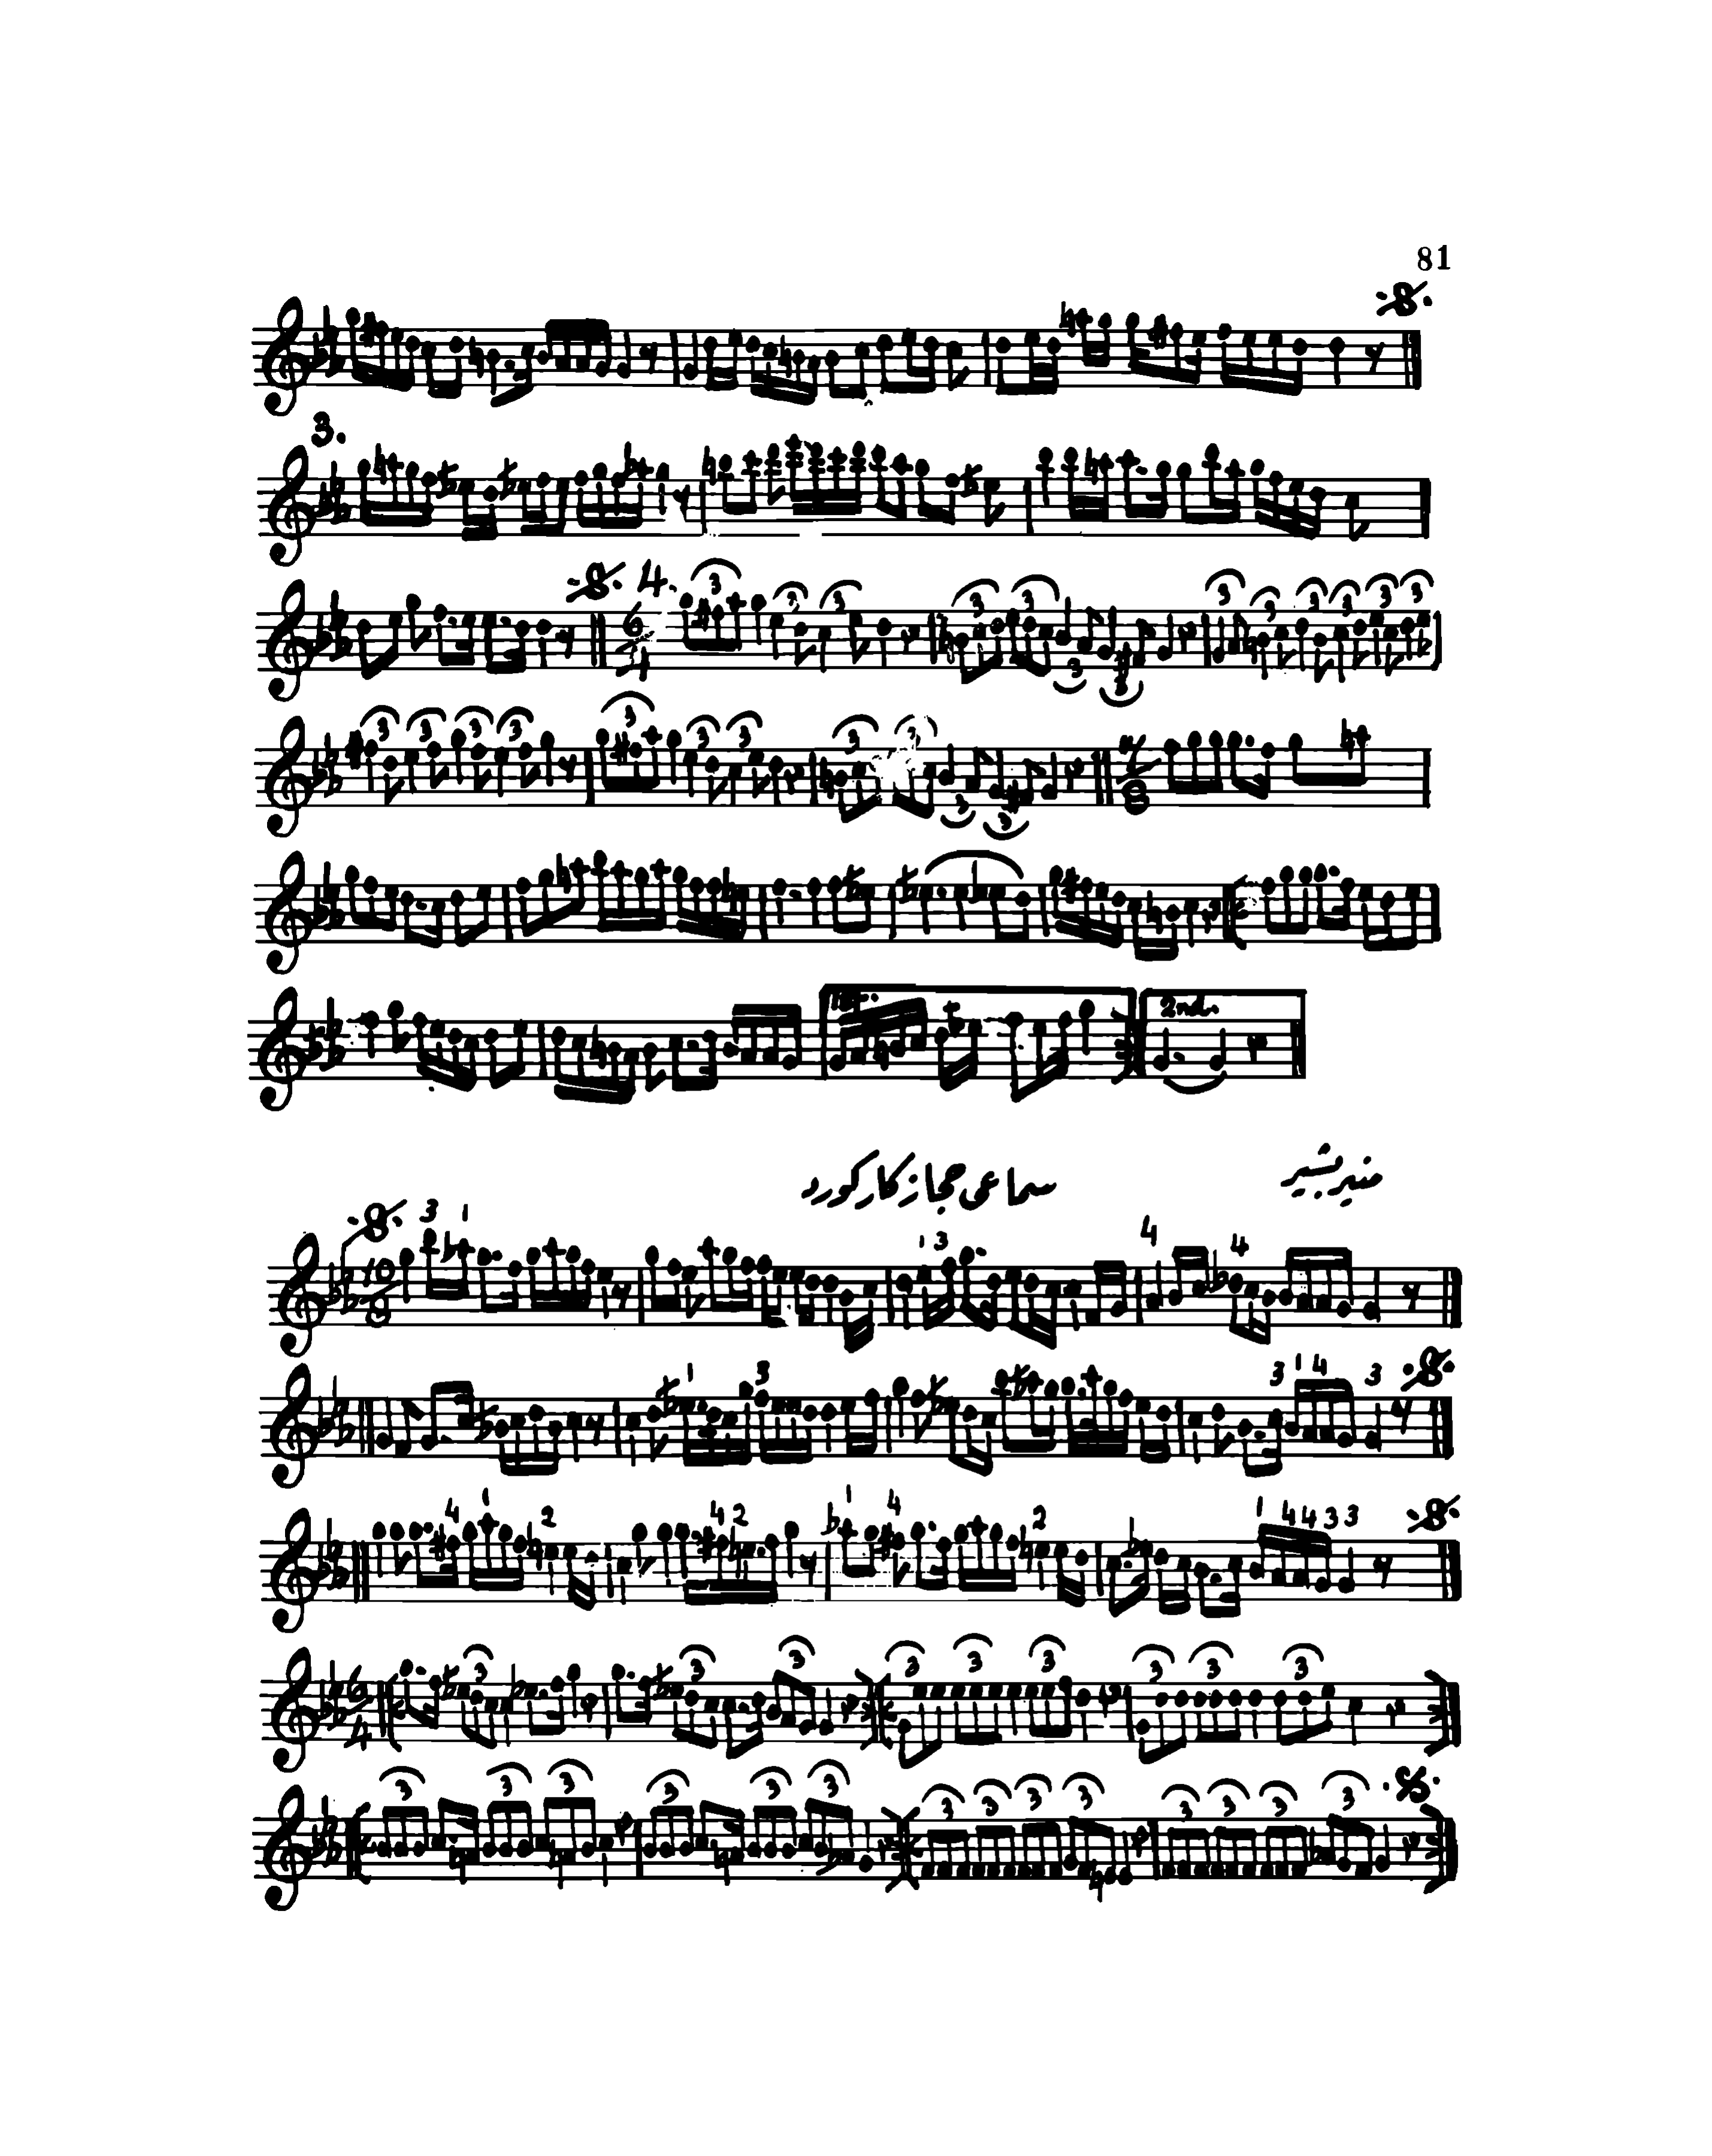 81
3.
4.
1st.
2nd.
سماعی حجاز کار کورد
منیر بشیر